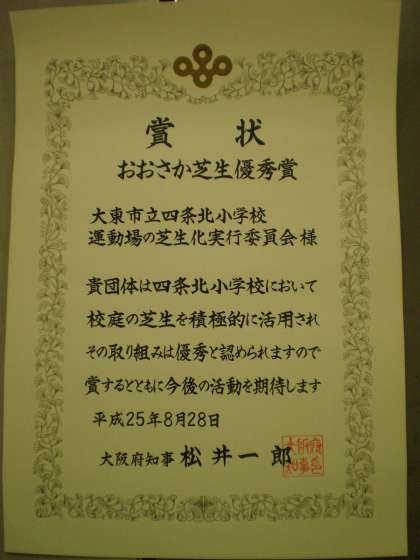 賞 状
おおさか芝生優秀賞
大東市立四条北小学校
運動場の芝生化実行委員会 様
貴団体は四条北小学校において
校庭の芝生を積極的に活用され
その取り組みは優秀と認められますので
賞するとともに今後の活動を期待します
平成25年8月28日
大阪府知事 松井一郎